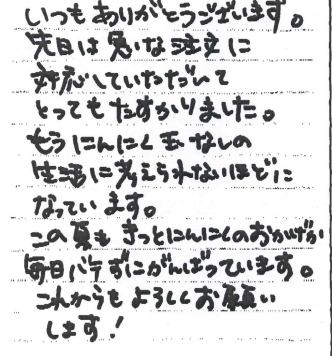 いつもありがとうございます。
先日は急いな注文に
対応していただいて
とってもたすかりました。
もうにんにく玉なしの
生活に考えられないほどに
なっています。
この夏もきっとにんにくのおかげか
毎日バテずにがんばっています。
これからもよろしくお願い
します!